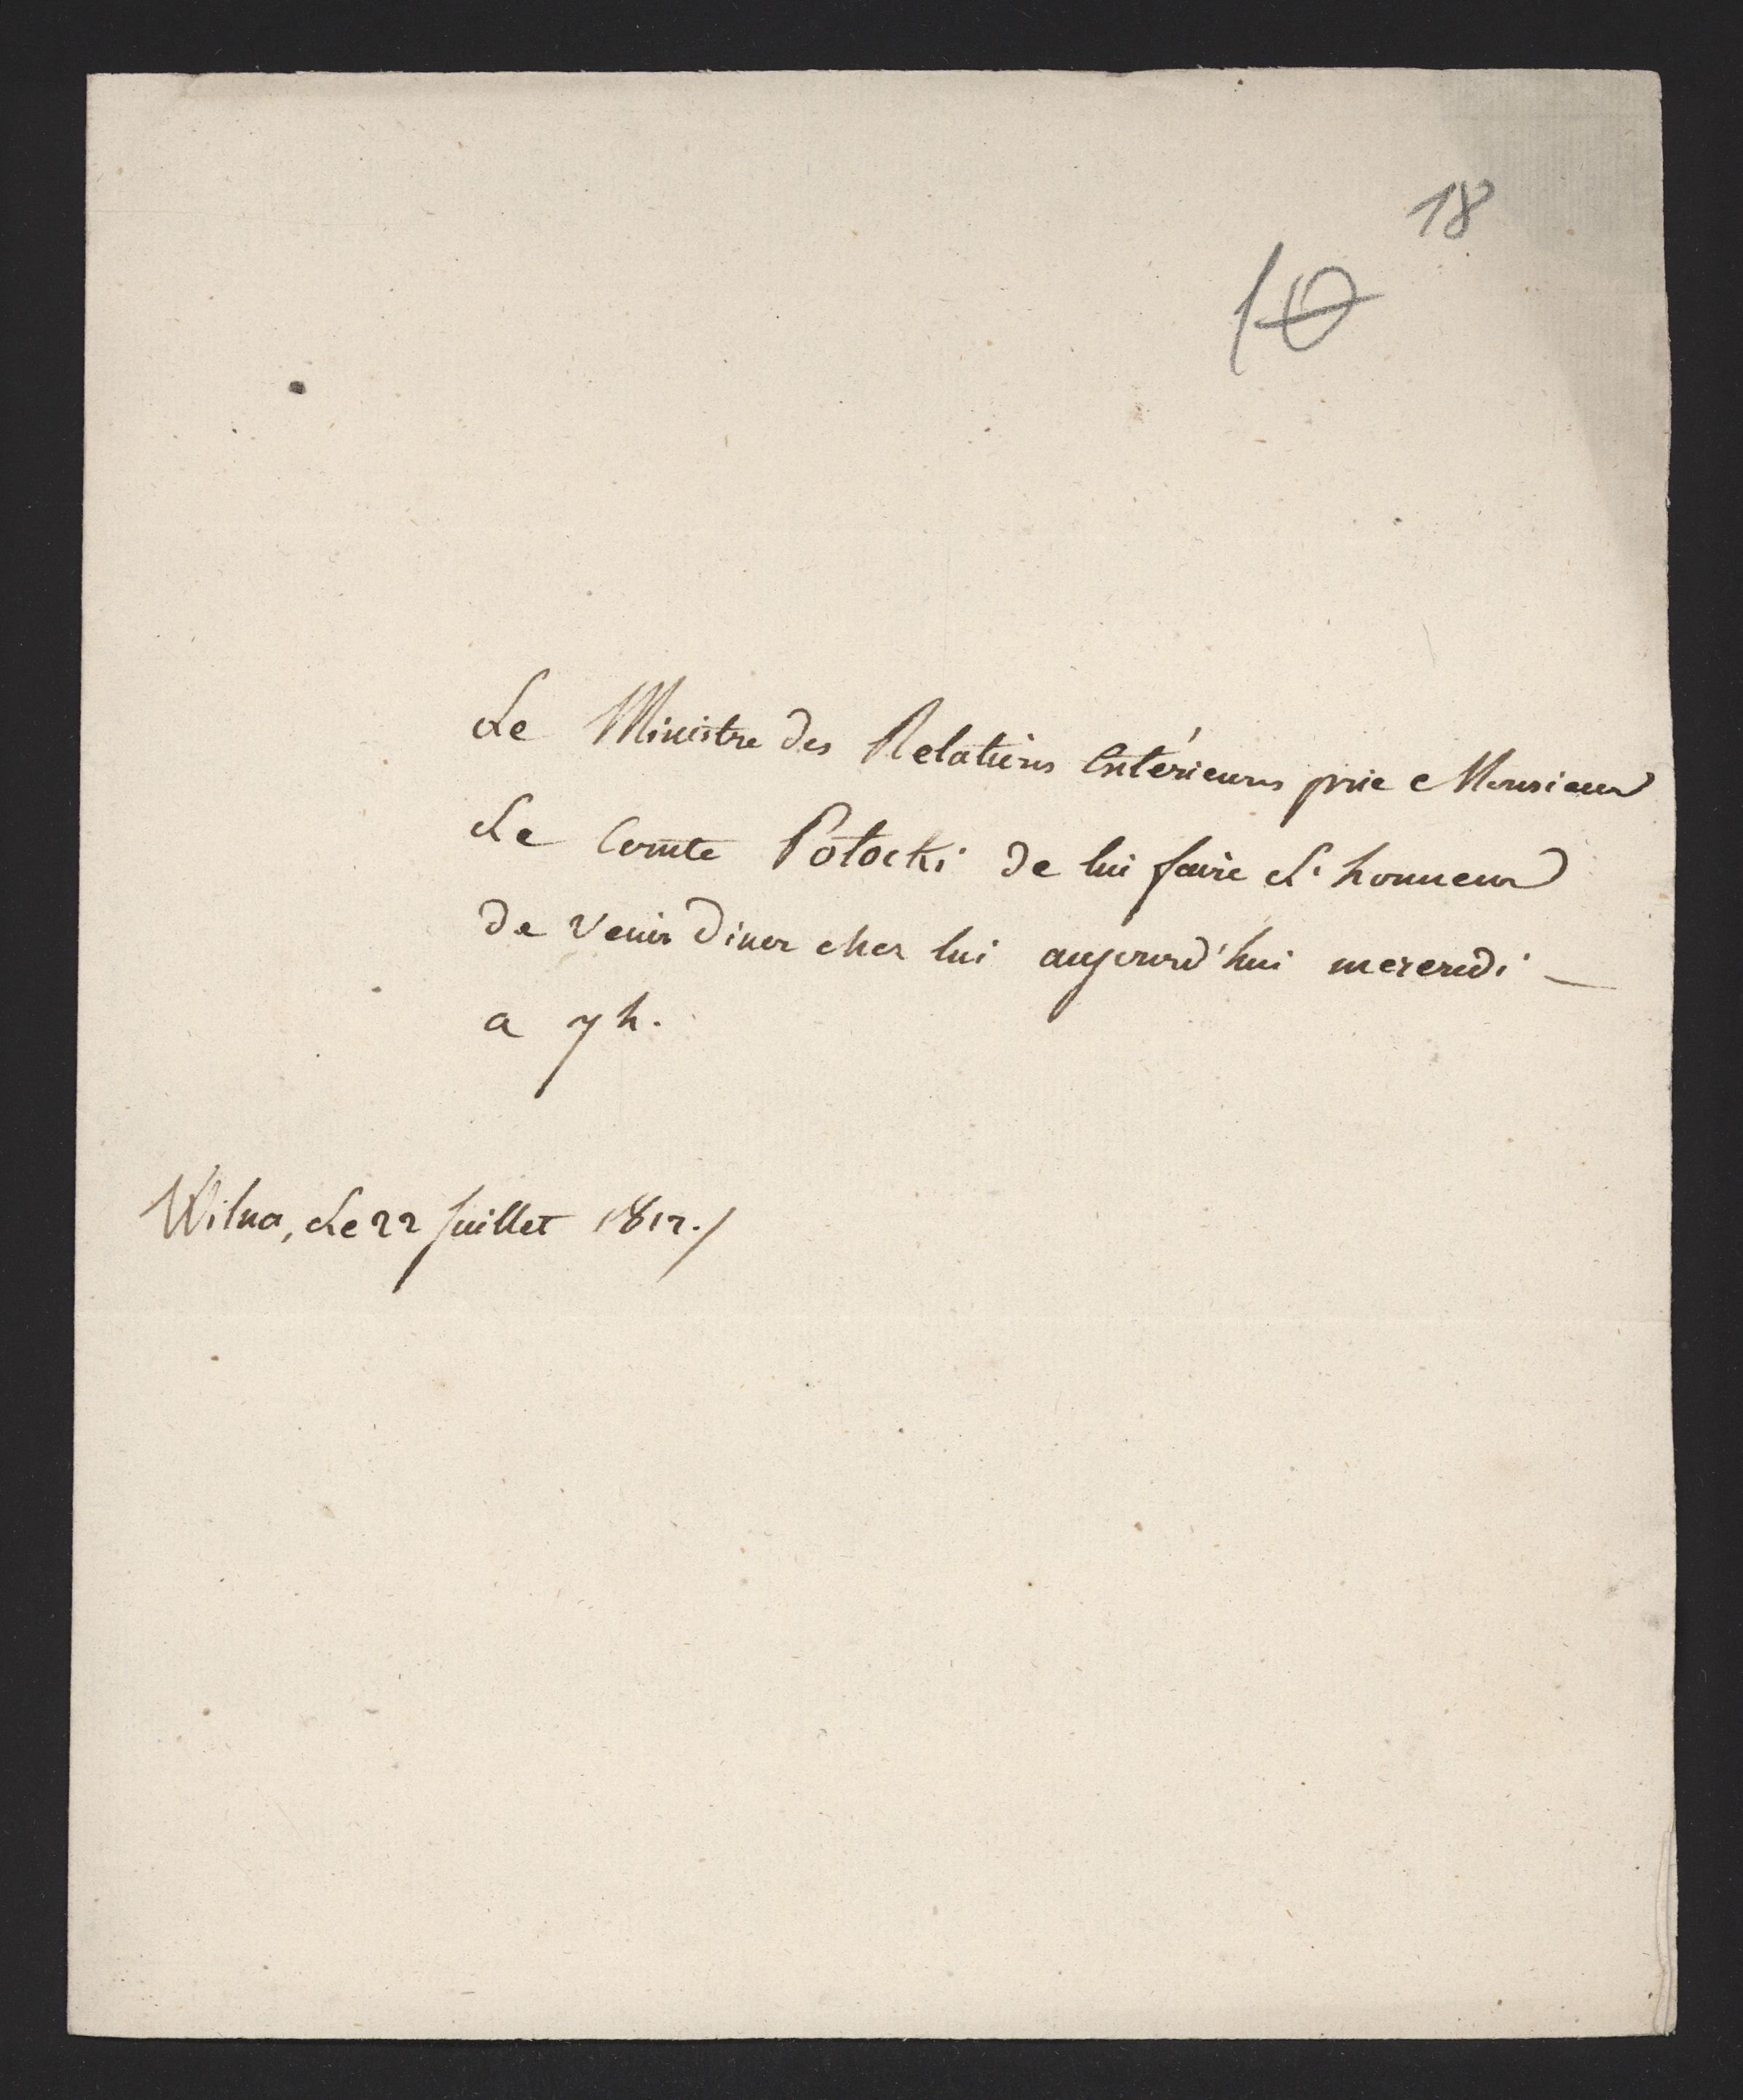 18
10
Le Ministre des Relations Extérieures prie Monsieur
Le Comte Potocki de lui faire L'honneur
de venir diner chez lui aujourd'hui mercredi
a 7 h.
Wilna, Le 22 Juillet 1812./